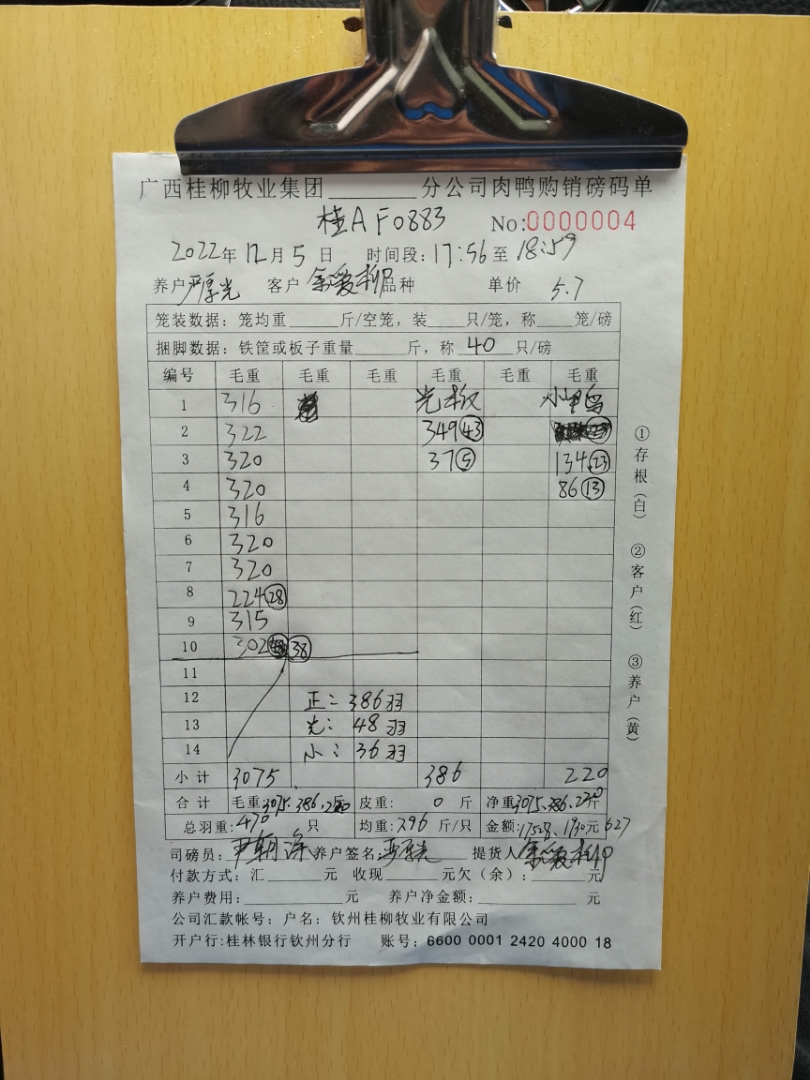 广西桂柳牧业集团________分公司肉鸭购销磅码单
桂A F0883 No:0000004
2022年12月5日 时间段:17:56至18:59
养户 客户 品种 单价 5.7
笼装数据:笼均重_____斤/空笼,装____只/笼,称____笼/磅
捆脚数据:铁筐或板子重量_____斤,称 40 只/磅
编号 毛重 毛重 毛重 毛重 毛重 毛重
1 316 光板 小鸭
2 322 349 43
3 320 37 5 134 23
4 320 86 13
5 316
6 320
7 320
8 224 28
9 315
10 302 38
11
12 正:386羽
13 光:48羽
14 小:36羽
小计 3075 386 220
合计 毛重:3075.386.220斤 皮重: 0 斤 净重:3075.386.220斤
总羽重:470 只 均重:7.96斤/只 金额:元 627
司磅员: 养户签名: 提货人
付款方式:汇_____元 收现_____元欠(余):_____元
养户费用:__________元 养户净金额:__________元
公司汇款帐号:户名:钦州桂柳牧业有限公司
开户行:桂林银行钦州分行 账号:6600 0001 2420 4000 18
①存根(白) ②客户(红) ③养户(黄)